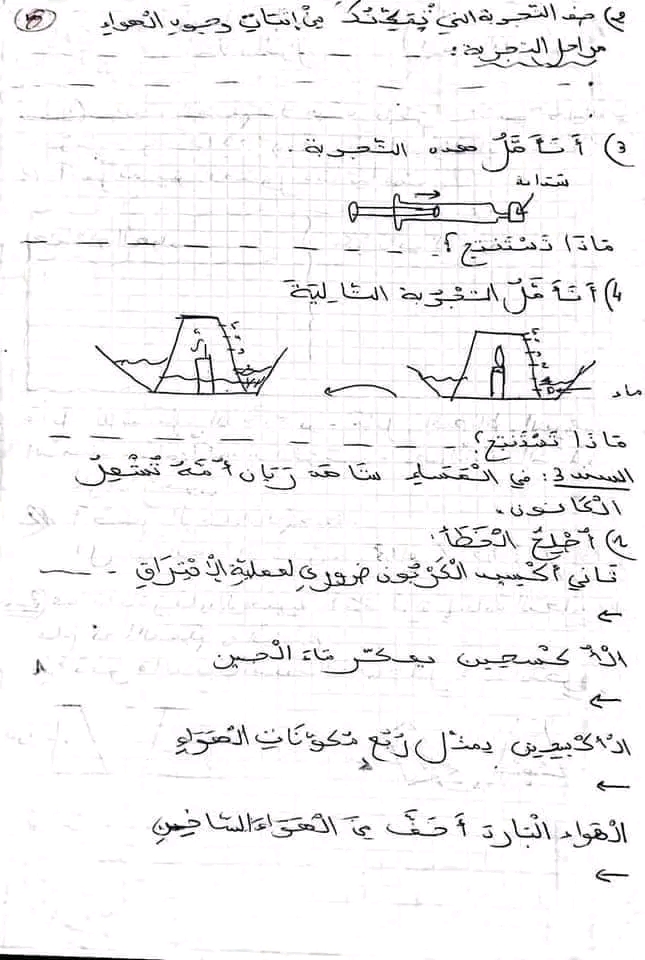 2) صف التجربة التي تمكنك من إثبات وجود الهواء
مراحل التجربة :
3) أَتَأَمَّلُ هذه التَّجربة .
سَدادة
مَاذَا تَسْتَنْتِج ؟
4) أتَأَمَّلُ التجْرُبة التَّالِيَةَ
ماء
مَاذَا تَسْتَنتِجُ؟
السند 3 : في الْمَسَاءِ شَاهَدَ رَيَان أُمَّهُ تُشْعِلُ
الْكَانُون.
1) أصْلِحُ الْخَطَأ :
ثَاني أكْسيد الْكَرْبُون ضَرُوري لعمليّةِ الإحْتِرَاقِ .
←
الْأُكسجين يعكّر مَاءَ الْجير
←
الأُكْسِجين يمثل رُبُعَ مُكَوّنَاتِ الْهَوَاءِ
←
الْهَواء الْبَارد أَخَفُّ مِنَ الْهَوَاءَ السَّاخِنِ
←